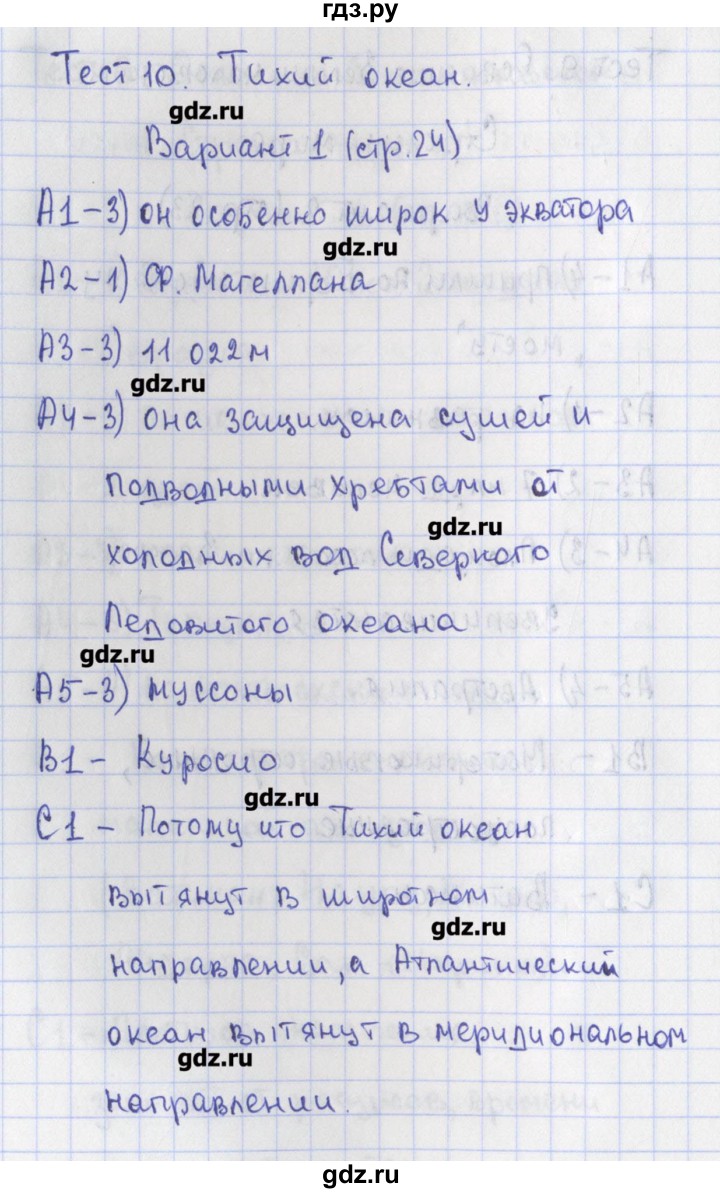 гдз.ру
Тест 10. Тихий океан.
gdz.ru
Вариант 1 (стр.24)
А1-3) он особенно широк у экватора
gdz.ru
А2-1) Ф. Магеллана
А3-3) 11 022м
gdz.ru
А4-3) она защищена сушей и
подводными хребтами от
gdz.ru
холодных вод Северного
Ледовитого океана
gdz.ru
А5-3) муссоны
В1- Куросио
gdz.ru
С1- Потому что Тихий океан
вытянут в широтном
gdz.ru
направлении, а Атлантический
океан вытянут в меридиональном
gdz.ru
направлении.
gdz.ru